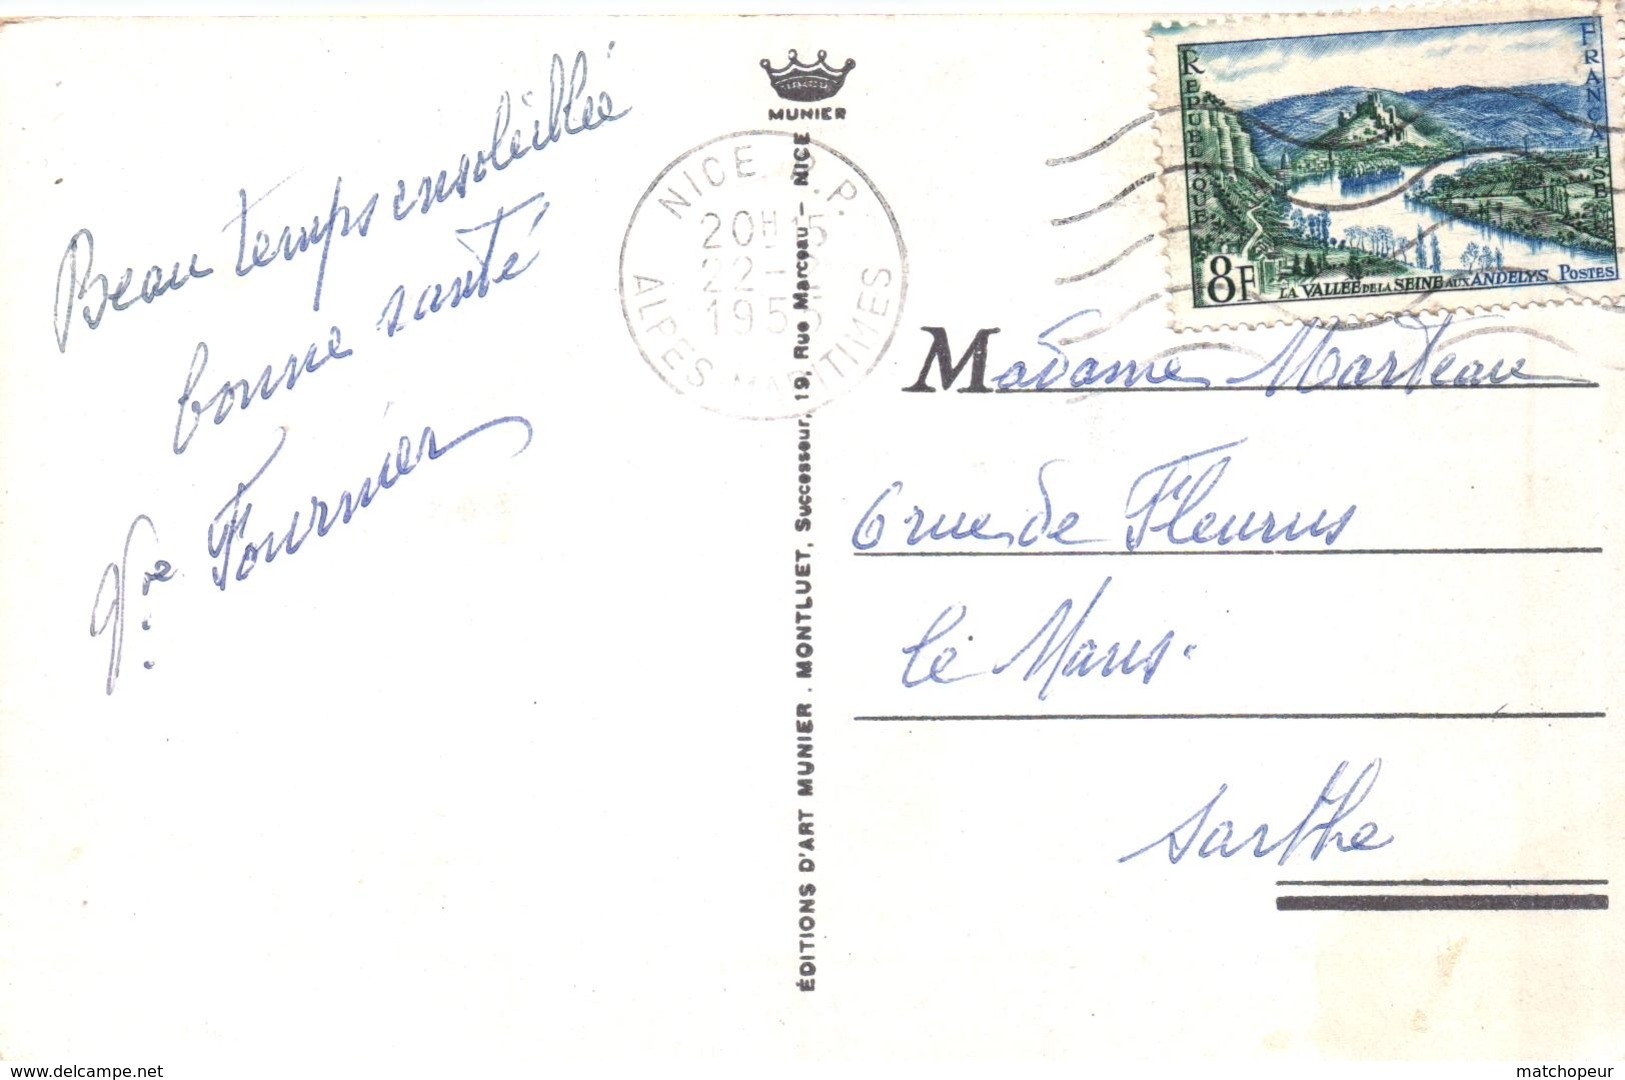 Beau temps ensoleillée
bonne santé
Vre Fournier
MUNIER
ÉDITIONS D'ART MUNIER . MONTLUET, Successeur, 19, Rue Marceau - NICE
NICE R.P.
20H15
22-
1955
ALPES-MARITIMES
RÉPUBLIQUE
FRANÇAISE
8F
LA VALLÉE DE LA SEINE AUX ANDELYS POSTES
Madame Marteau
6 rue de Fleurus
le Mans.
Sarthe
www.delcampe.net
matchopeur